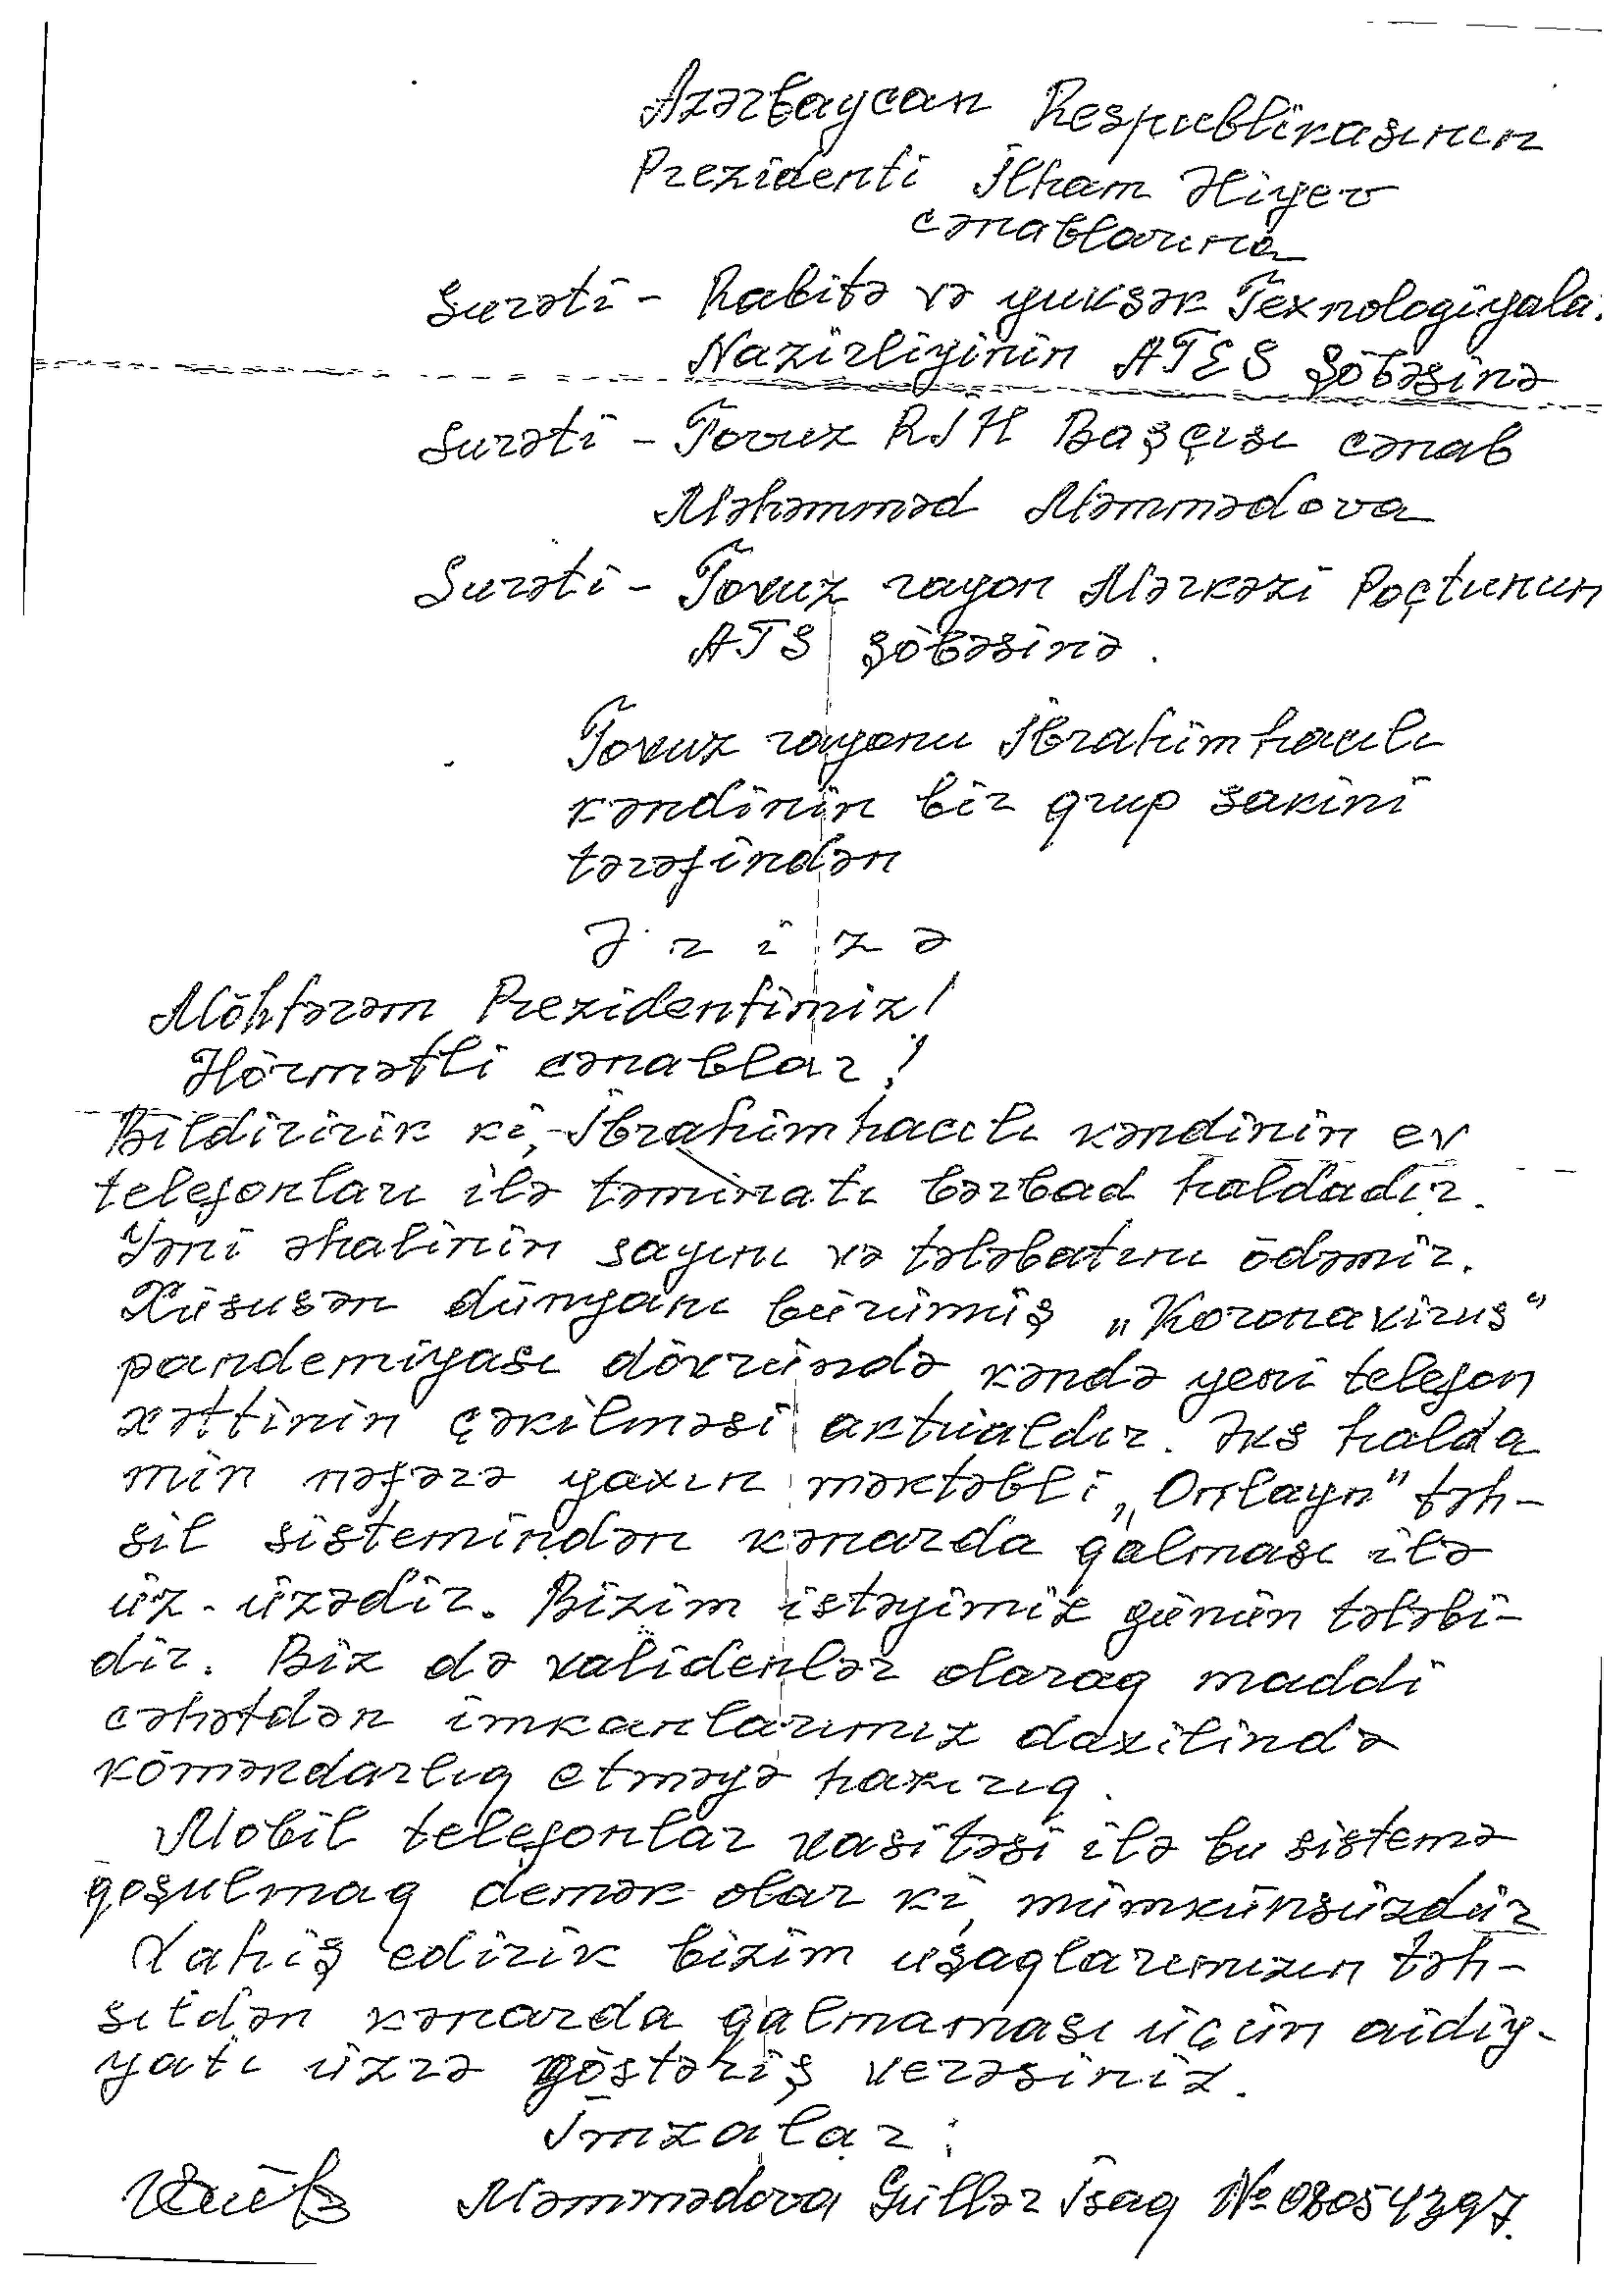 Azərbaycan Respublikasının
Prezidenti İlham Əliyev
cənablarına
Surəti - Rabitə və yuksək Texnologiyala
Nazirliyinin ATES Şöbəsinə
Surəti - Tovuz RİH Başçısı cənab
Məhəmməd Məmmədova
Surəti - Tovuz rayon Mərkəzi Poçtunun
ATS şöbəsinə.
Tovuz rayonu İbrahimhacılı
kəndinin bir qrup sakini
tərəfindən
Ə r i z ə
Möhtərəm Prezidentimiz!
Hörmətli cənablar!
Bildiririk ki, İbrahimhacılı kəndinin ev
telefonları ilə təminatı bərbad haldadır.
Yəni əhalinin sayını və tələbatını ödəmir.
Xüsusən dünyanı bürümüş „Koronavirus“
pandemiyası dövründə kəndə yeni telefon
xəttinin çəkilməsi aktualdır. Əks halda
min nəfərə yaxın məktəbli „Onlayn" təh-
sil sistemindən kənarda qalması ilə
üz-üzədir. Bizim istəyimiz günün tələbi-
dir. Biz də validenlər olaraq maddi
cəhətdən imkanlarımız daxilində
köməkdarlıq etməyə hazırıq.
Mobil telefonlar vasitəsi ilə bu sistemə
qoşulmaq demək olar ki, mümkünsüzdür
Xahiş edirik bizim uşaqlarımızın təh-
sildən kənarda qalmaması üçün aidiy-
yatı üzrə göstəriş verəsiniz.
İmzalar:
Məmmədova Güllər İsaq № 08054397.